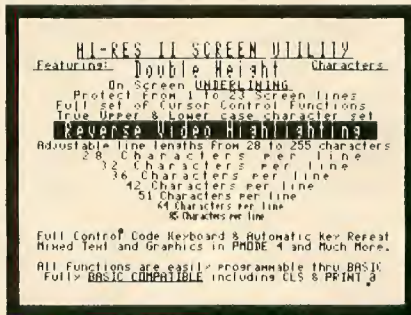 HI-RES II SCREEN UTILITY
Featuring: Double Height Characters
On Screen UNDERLINING
Protect from 1 to 23 Screen lines
Full set of Cursor Control Functions
True Upper & Lower case character set
Reverse Video Highlighting
Adjustable line lengths from 28 to 255 characters
28 Characters per line
32 Characters per line
36 Characters per line
42 Characters per line
51 Characters per line
64 Characters per line
85 Characters per line
Full Control Code Keyboard & Automatic Key Repeat
Mixed Text and Graphics in PMODE 4 and Much More.
All Functions are easily programmable thru BASIC
Fully BASIC COMPATIBLE including CLS & PRINT @